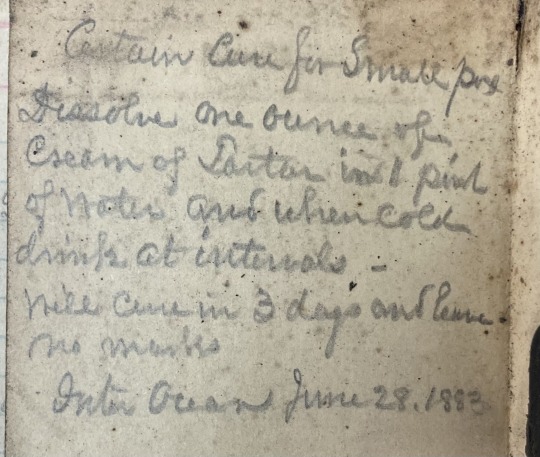 Certain Cure for Small pox
Dissolve one ounce of
Cream of Tartar in 1 pint
of Water and when cold
drink at intervals -
Will cure in 3 days and leave
no marks
Inter Ocean June 28. 1883